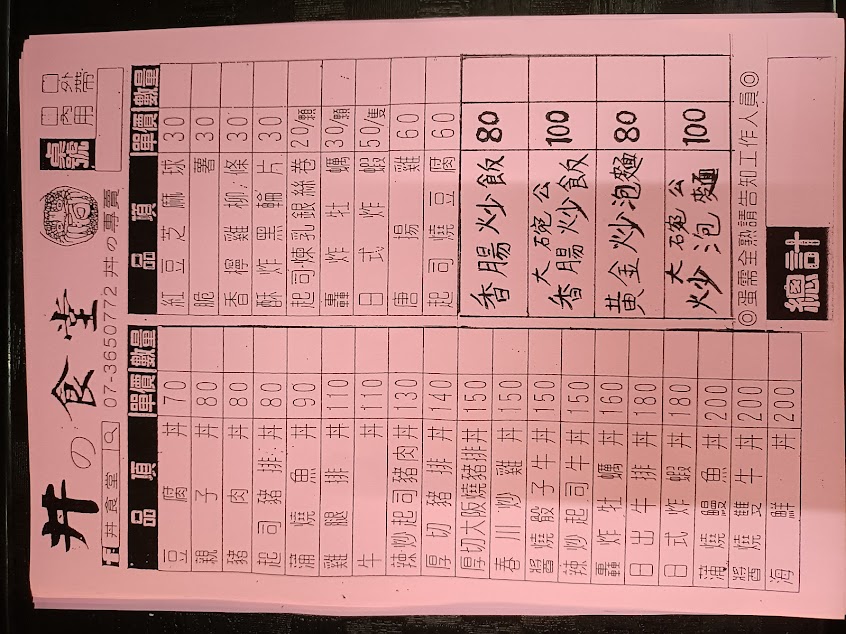 丼の食堂
號
□內用
□外帶
f 丼食堂
07-3650772 丼の專賣
品項 單價 數量
豆腐丼 70
親子丼 80
豬肉丼 80
起司豬排丼 80
蒲燒魚丼 90
雞腿排丼 110
牛丼 110
辣炒起司豬肉丼 130
厚切豬排丼 140
厚切大阪燒豬排丼 150
春川炒雞丼 150
醬燒骰子牛丼 150
辣炒起司牛丼 150
轟炸牡蠣丼 160
日出牛排丼 180
日式炸蝦丼 180
蒲燒鰻魚丼 200
醬燒雙牛丼 200
海鮮丼 200
品項 單價 數量
紅豆芝麻球 30
脆薯 30
香檸雞柳條 30
酥炸黑輪片 30
起司·煉乳銀絲卷 20/顆
轟炸牡蠣 30/顆
日式炸蝦 50/隻
唐揚雞 60
起司燒豆腐 60
香腸炒飯 80
大碗公香腸炒飯 100
黃金炒泡麵 80
大碗公炒泡麵 100
◎蛋需全熟請告知工作人員◎
總計